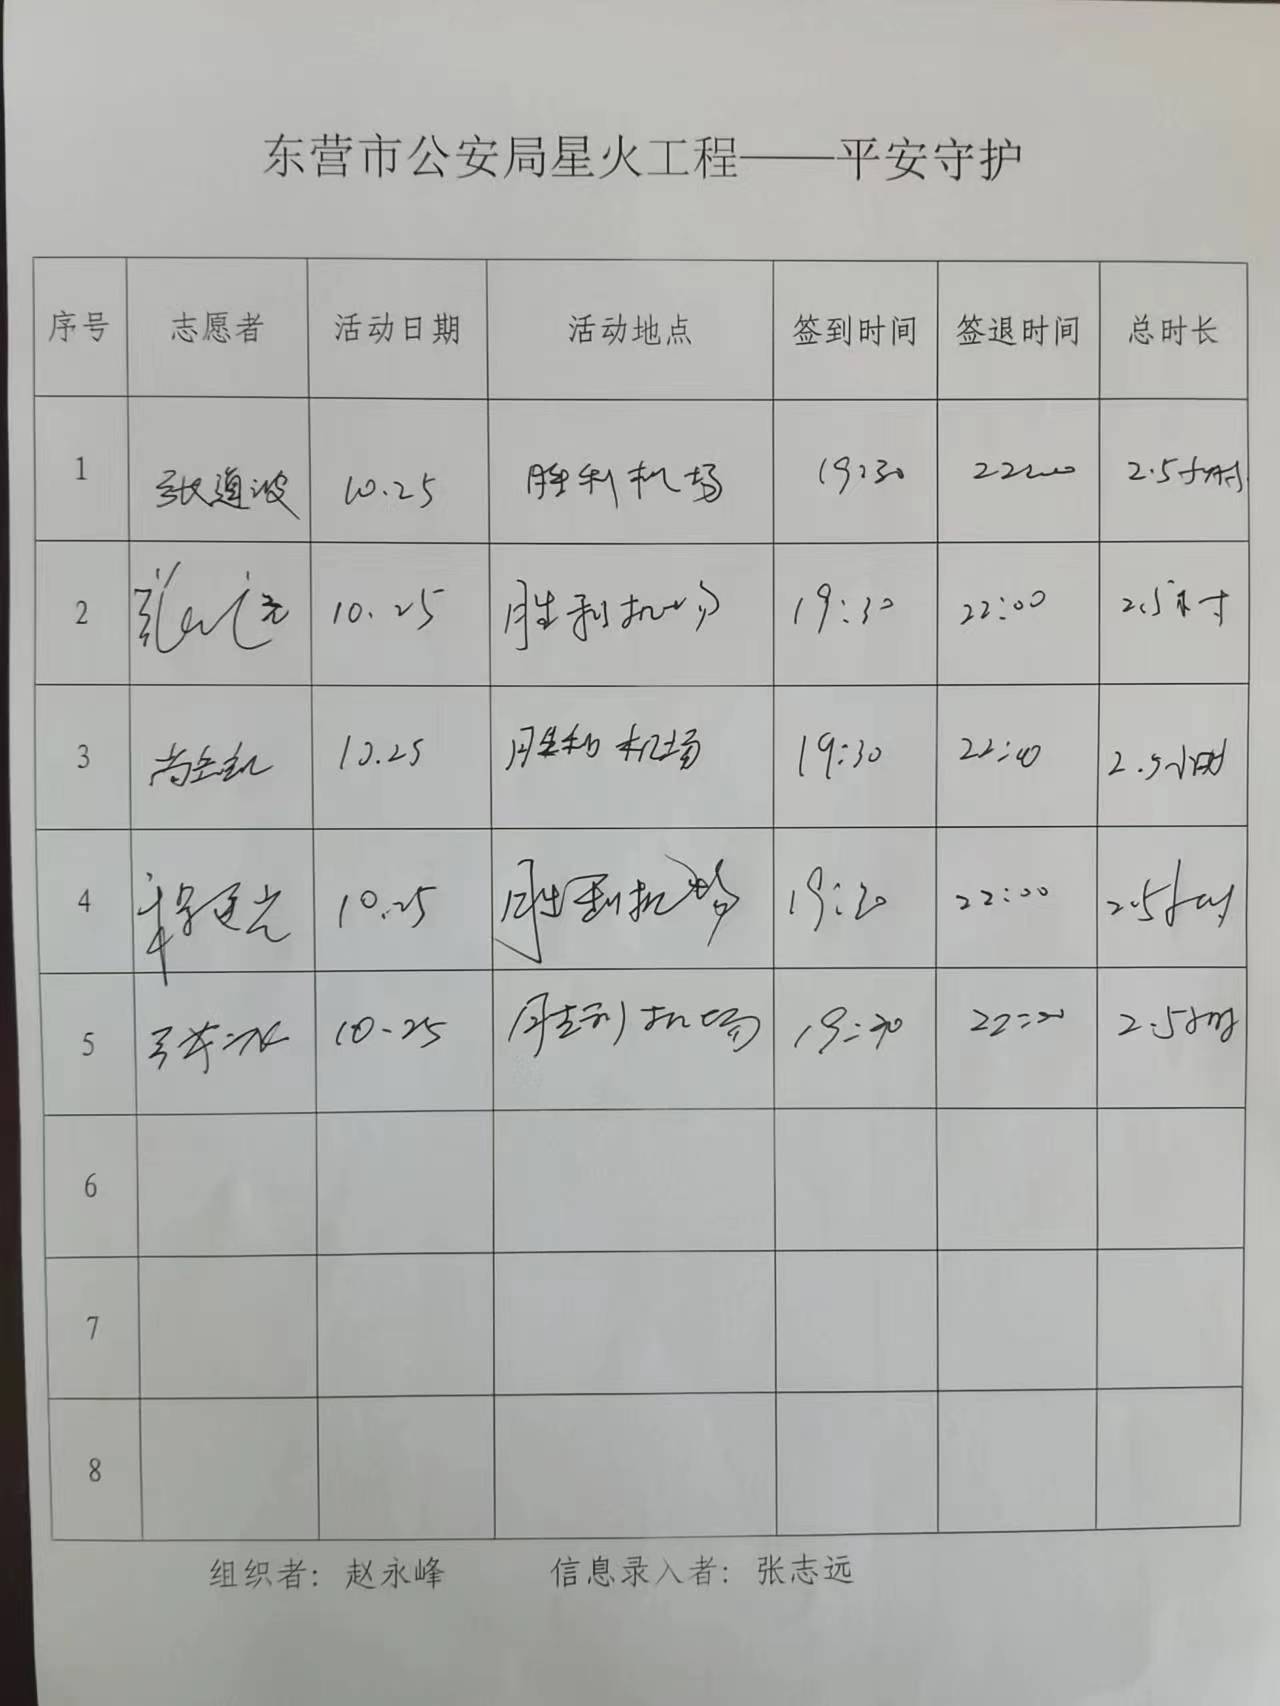 东营市公安局星火工程——平安守护
序号 志愿者 活动日期 活动地点 签到时间 签退时间 总时长
1 张道波 10.25 胜利机场 19:30 22:00 2.5小时
2 10.25 胜利机场 19:30 22:00 2.5小时
3 10.25 胜利机场 19:30 22:00 2.5小时
4 10.25 胜利机场 19:30 22:00 2.5小时
5 10.25 胜利机场 19:30 22:00 2.5小时
6
7
8
组织者：赵永峰 信息录入者：张志远